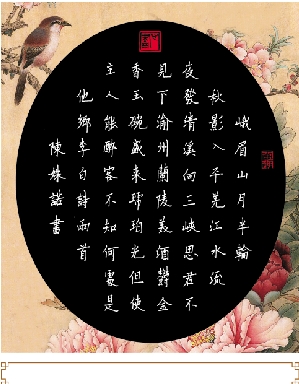 峨眉山月半輪
秋影入平羌江水流
夜發清溪向三峽思君不
見下渝州蘭陵美酒鬱金
香玉碗盛來琥珀光但使
主人能醉客不知何處是
他鄉李白詩兩首
陳姝諾書